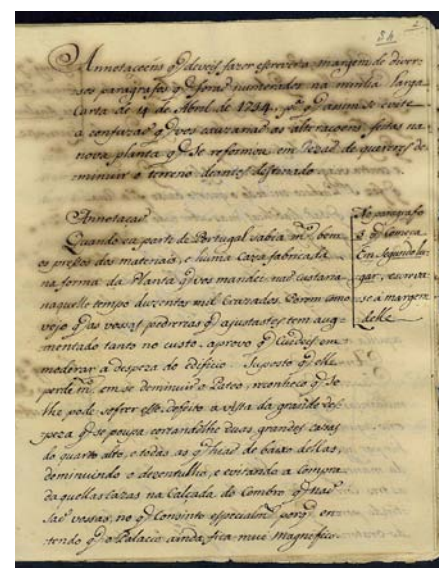 54.
Annotacoens q̃ deveis fazer escrever a margem de diver-
sos paragrafos q̃ foraõ numerados na minha larga
Carta de 14 de Abril de 1754. p.ª q̃ assim se evite
a confuzaõ q̃ vos cauzariaõ as alteraçoens feitas na
nova planta q̃ se reformou em rezaõ de quereres de-
minuir o terreno deantes destinado.
Annotaçaõ
Quando eu parti de Portugal sabia m.to bem
os preços dos materiais, e huma Caza fabricada
na forma da Planta q̃ vos mandei naõ custaria
naquelle tempo duzentos mil Cruzados. Porem como
vejo q̃ as vossas pedreiras q̃ ajustastes tem aug-
mentado tanto no custo, aprovo q̃ Cuideis em
moderar a despeza do edificio. Suposto q̃ elle
perde m.to em se deminuir o Pateo, reconheço q̃ se
lhe pode sofrer esse defeito a vista da grande des-
peza q̃ se poupa, cortandolhe duas grandes casas
do quarto alto, e todas as q̃ hiaõ de baixo dellas,
deminuindo o dezentulho, e evitando a Compra
daquellas Cazas na Calçada do Combro q̃ naõ
saõ vossas, no q̃ Consinto especialm.te porq̃ en-
tendo q̃ o Palacio ainda fica mui magnifico.
No paragrafo
3 q̃ Começa
Em segundo lu-
gar, escreva-
se a margem
delle